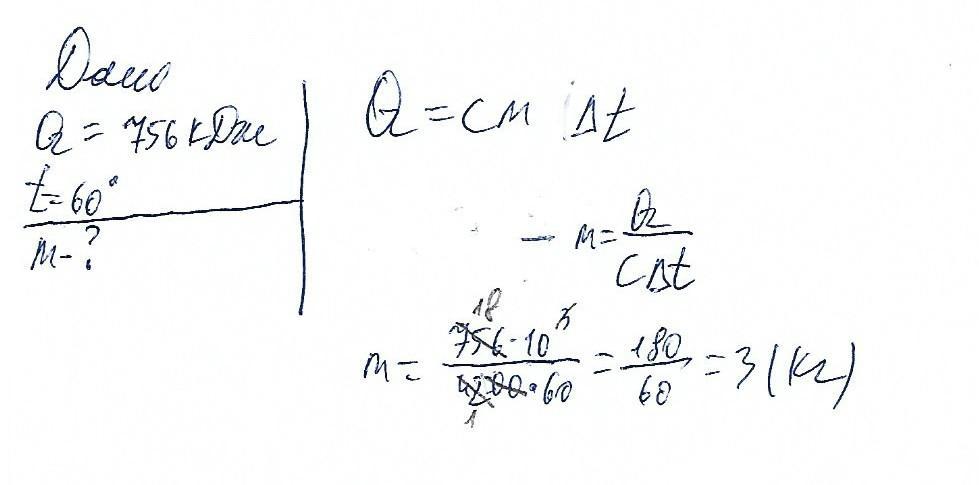 Дано
Q = 756 кДж
t = 60°
m - ?
Q = cm Δt
— m = Q / cΔt
18
m = 756 · 10³ / 4200 · 60 = 180 / 60 = 3 (кг)
1